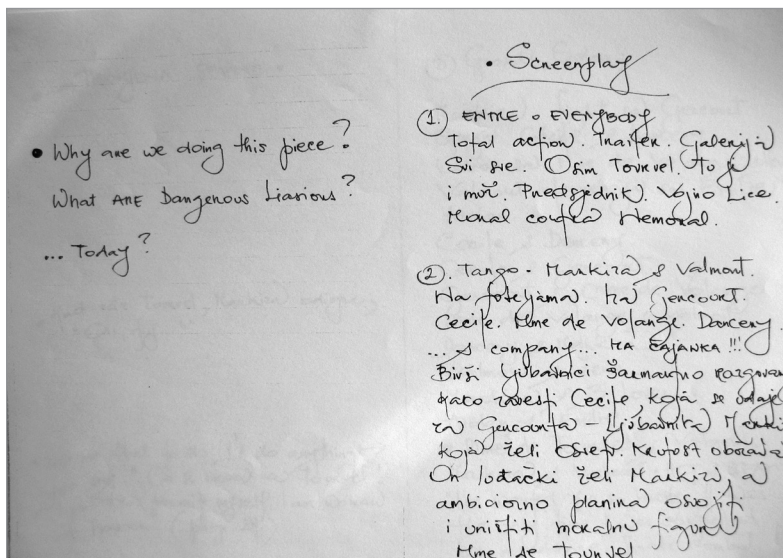 • Why are we doing this piece?
What ARE Dangerous Liasious?
... Today?
• Screenplay
1. ENTRE • EVERYBODY
Total action. Trailer. Galerija
Svi sve. Osim Tourvel. Tu je
i muž. Predsjednik. Vojno Lice.
Moral contra Nemoral.
2. Tango - Markiza & Valmont.
Na foteljama. Na Gercourt.
Cecile. Mme de Volange. Danceny
... & company... NA ČAJANKA !!!
Bivši ljubavnici šarmantno razgovara
kako zavesti Cecile, koja se udaje
za Gercourta - Ljubavnika Marki
koja želi osvetu. Krutost obožava
On luđački želi Markizu, a
ambiciozno planira osvojiti
i uništiti moralnu figuru
Mme de Tourvel